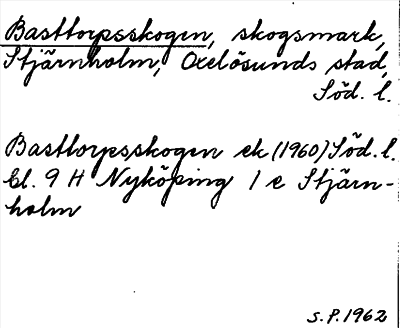 Basttorpsskogen, skogsmark,
Stjärnholm, Oxelösunds stad,
Söd. l.
Basttorpsskogen ek (1960) Söd. l.
Bl. 9 H Nyköping 1 e Stjärn-
holm
S.P. 1962